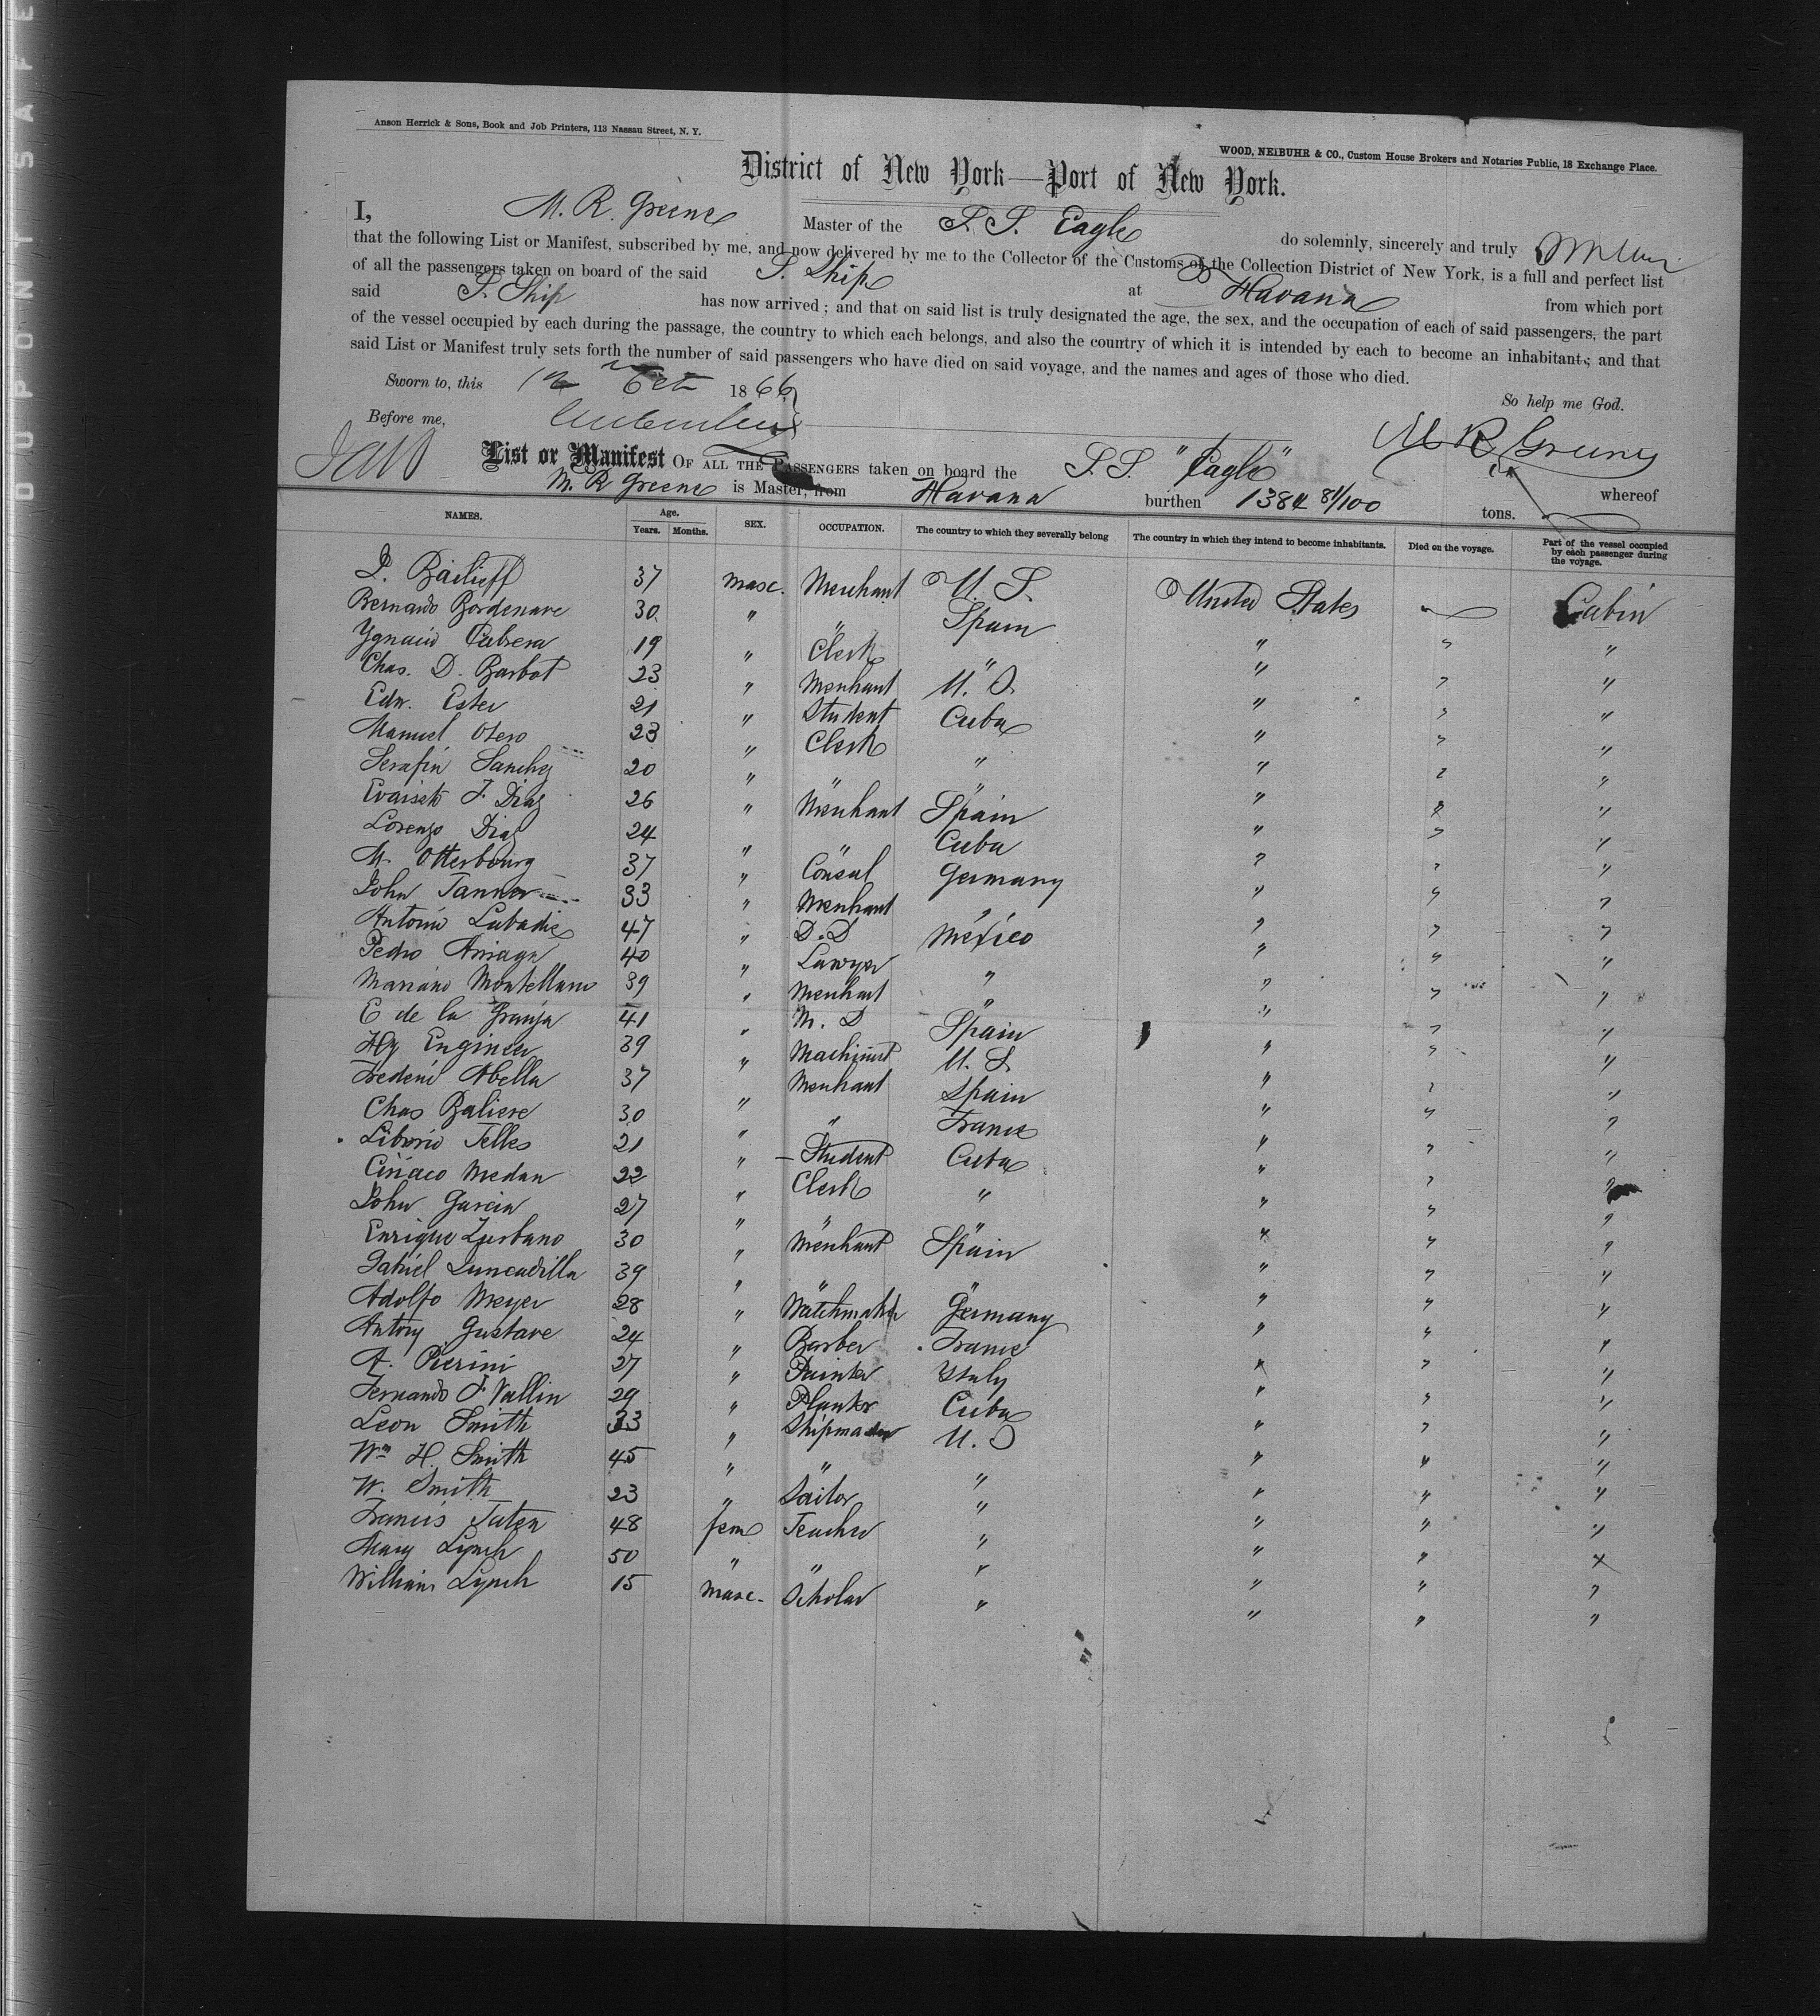 DUPONT SAFE
Anson Herrick & Sons, Book and Job Printers, 113 Nassau Street, N. Y.
WOOD, NEIBUHR & CO., Custom House Brokers and Notaries Public, 18 Exchange Place.
District of New York—Port of New York.
I, M. R. Greene Master of the S. S. Eagle do solemnly, sincerely and truly
that the following List or Manifest, subscribed by me, and now delivered by me to the Collector of the Customs of the Collection District of New York, is a full and perfect list
of all the passengers taken on board of the said S. Ship at Havana from which port
said S. Ship has now arrived; and that on said list is truly designated the age, the sex, and the occupation of each of said passengers, the part
of the vessel occupied by each during the passage, the country to which each belongs, and also the country of which it is intended by each to become an inhabitant; and that
said List or Manifest truly sets forth the number of said passengers who have died on said voyage, and the names and ages of those who died.
Sworn to, this 12 Oct 1866 So help me God.
Before me, M R Greene
List or Manifest OF ALL THE PASSENGERS taken on board the S. S. "Eagle" whereof
M. R Greene is Master, from Havana burthen 1384 81/100 tons.
NAMES. Age. Years. Months. SEX. OCCUPATION. The country to which they severally belong The country in which they intend to become inhabitants. Died on the voyage. Part of the vessel occupied by each passenger during the voyage.
37 masc. Merchant U. S. United States Cabin
Bernardo Bordenave 30 " " Spain " " "
Ygnacio Cabrera 19 " Clerk " " " "
Chas. D. Barbot 23 " Merchant U. S. " " "
Edw. Ester 21 " Student Cuba " " "
Manuel Otero 23 " Clerk " " " "
Serafin Sanchez 20 " " " " " "
Evaristo F. Diaz 26 " Merchant Spain " " "
Lorenzo Diaz 24 " " Cuba " " "
M. Otterbourg 37 " Consul Germany " " "
John Tanner 33 " Merchant " " " "
Antonio Labadie 47 " D. D Mexico " " "
Pedro Arriaga 40 " Lawyer " " " "
Mariano Montellano 39 " Merchant " " " "
E de la Granja 41 " M. D Spain " " "
Hy Engineer 39 " Machinist U. S. " " "
Frederic Abella 37 " Merchant Spain " " "
Chas Baliere 30 " " France " " "
Liborio Telles 21 " Student Cuba " " "
Ciriaco Medan 22 " Clerk " " " "
John Garcia 27 " " " " " "
Enrique Zurbano 30 " Merchant Spain " " "
39 " " " " " "
Adolfo Meyer 28 " Watchmaker Germany " " "
Antony Gustave 24 " Barber France " " "
A. Pierini 27 " Painter Italy " " "
Fernando F. Vallin 29 " Planter Cuba " " "
Leon Smith 33 " Shipmaster U. S " " "
Wm H. Smith 45 " " " " " "
W. Smith 23 " Sailor " " " "
Francis 48 fem Teacher " " " "
Mary Lynch 50 " " " " " "
William Lynch 15 masc. Scholar " " " "